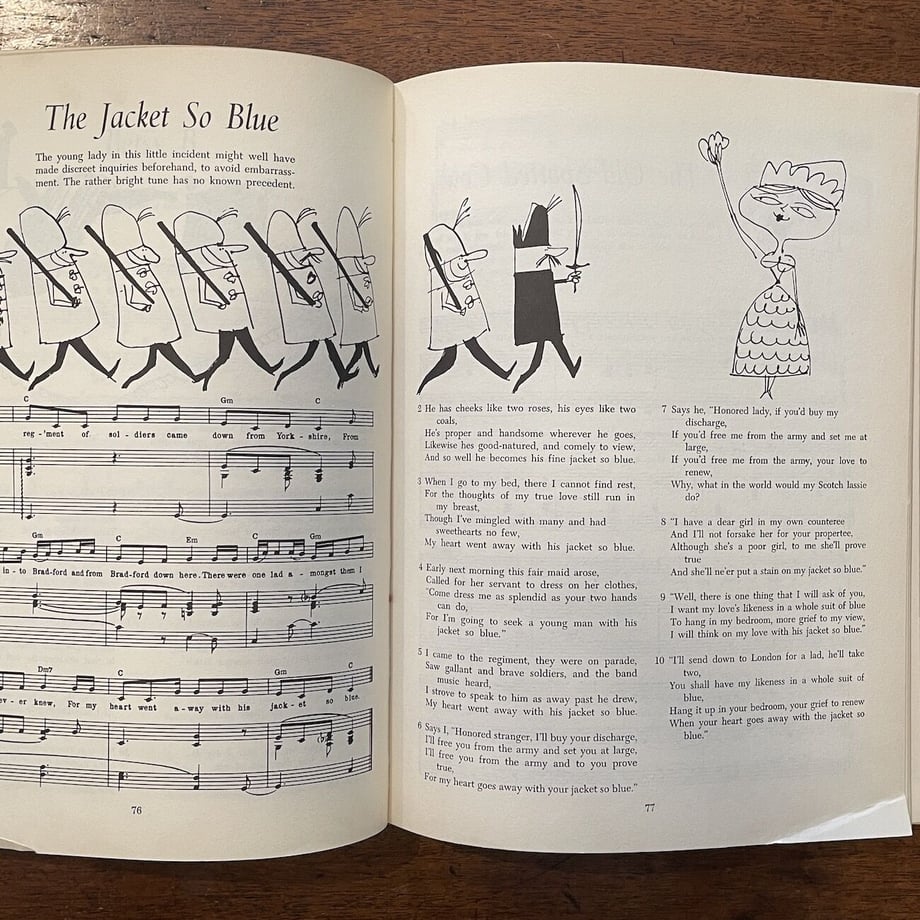 The Jacket So Blue
The young lady in this little incident might well have
made discreet inquiries beforehand, to avoid embarrass-
ment. The rather bright tune has no known precedent.
C Gm C
reg-'ment of sol-diers came down from York-shire, From
Gm C Em C Gm
in-to Brad-ford and from Brad-ford down here. There were one lad a-mongst them I
Dm7 C Gm C
ev-er knew, For my heart went a-way with his jack-et so blue.
76
2 He has cheeks like two roses, his eyes like two
coals,
He's proper and handsome wherever he goes,
Likewise hes good-natured, and comely to view,
And so well he becomes his fine jacket so blue.
3 When I go to my bed, there I cannot find rest,
For the thoughts of my true love still run in
my breast,
Though I've mingled with many and had
sweethearts no few,
My heart went away with his jacket so blue.
4 Early next morning this fair maid arose,
Called for her servant to dress on her clothes,
"Come dress me as splendid as your two hands
can do,
For I'm going to seek a young man with his
jacket so blue."
5 I came to the regiment, they were on parade,
Saw gallant and brave soldiers, and the band
music heard,
I strove to speak to him as away past he drew,
My heart went away with his jacket so blue.
6 Says I, "Honored stranger, I'll buy your discharge,
I'll free you from the army and set you at large,
I'll free you from the army and to you prove
true,
For my heart goes away with your jacket so blue."
7 Says he, "Honored lady, if you'd buy my
discharge,
If you'd free me from the army and set me at
large,
If you'd free me from the army, your love to
renew,
Why, what in the world would my Scotch lassie
do?
8 "I have a dear girl in my own counteree
And I'll not forsake her for your propertee,
Although she's a poor girl, to me she'll prove
true
And she'll ne'er put a stain on my jacket so blue."
9 "Well, there is one thing that I will ask of you,
I want my love's likeness in a whole suit of blue
To hang in my bedroom, more grief to my view,
I will think on my love with his jacket so blue."
10 "I'll send down to London for a lad, he'll take
two,
You shall have my likeness in a whole suit of
blue,
Hang it up in your bedroom, your grief to renew
When your heart goes away with the jacket so
blue."
77